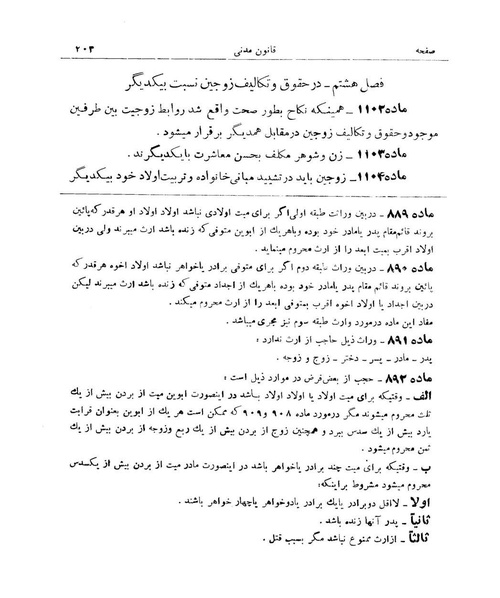 صفحه قانون مدنی ۲۰۳
فصل هشتم ـ در حقوق و تکالیف زوجین نسبت بیکدیگر
ماده ۱۱۰۲ ـ همینکه نکاح بطور صحت واقع شد روابط زوجیت بین طرفین
موجود و حقوق و تکالیف زوجین در مقابل همدیگر برقرار میشود.
ماده ۱۱۰۳ ـ زن و شوهر مکلف بحسن معاشرت بایکدیگرند.
ماده ۱۱۰۴ ـ زوجین باید در تشیید مبانی خانواده و تربیت اولاد خود بیکدیگر
ماده ۸۸۹ ـ در بین وراث طبقه اولی اگر برای میت اولادی نباشد اولاد اولاد او هر قدر که پائین
بروند قائم‌مقام پدر یا مادر خود بوده و با هر یک از ابوین متوفی که زنده باشد ارث میبرند ولی در بین
اولاد اقرب بمیت ابعد را از ارث محروم مینماید.
ماده ۸۹۰ ـ در بین وراث طبقه دوم اگر برای متوفی برادر یا خواهر نباشد اولاد اخوه هر قدر که
پائین بروند قائم مقام پدر یا مادر خود بوده با هر یک از اجداد متوفی که زنده باشد ارث میبرند لیکن
در بین اجداد یا اولاد اخوه اقرب بمتوفی ابعد را از ارث محروم میکند.
مفاد این ماده در مورد وارث طبقه سوم نیز مجری میباشد.
ماده ۸۹۱ ـ وراث ذیل حاجب از ارث ندارد:
پدر ـ مادر ـ پسر ـ دختر ـ زوج و زوجه.
ماده ۸۹۲ ـ حجب از بعض فرض در موارد ذیل است:
الف ـ وقتیکه برای میت اولاد یا اولاد اولاد باشد در اینصورت ابوین میت از بردن بیش از یک
ثلث محروم میشوند مگر در مورد ماده ۹۰۸ و ۹۰۹ که ممکن است هر یک از ابوین بعنوان قرابت
یا رد بیش از یک سدس ببرد و همچنین زوج از بردن بیش از یک ربع و زوجه از بردن بیش از یک
ثمن محروم میشود.
ب ـ وقتیکه برای میت چند برادر یا خواهر باشد در اینصورت مادر میت از بردن بیش از یکسدس
محروم میشود مشروط بر اینکه:
اولا ـ لااقل دو برادر یا یک برادر با دو خواهر یا چهار خواهر باشند.
ثانیاً ـ پدر آنها زنده باشد.
ثالثاً ـ از ارث ممنوع نباشد مگر بسبب قتل.